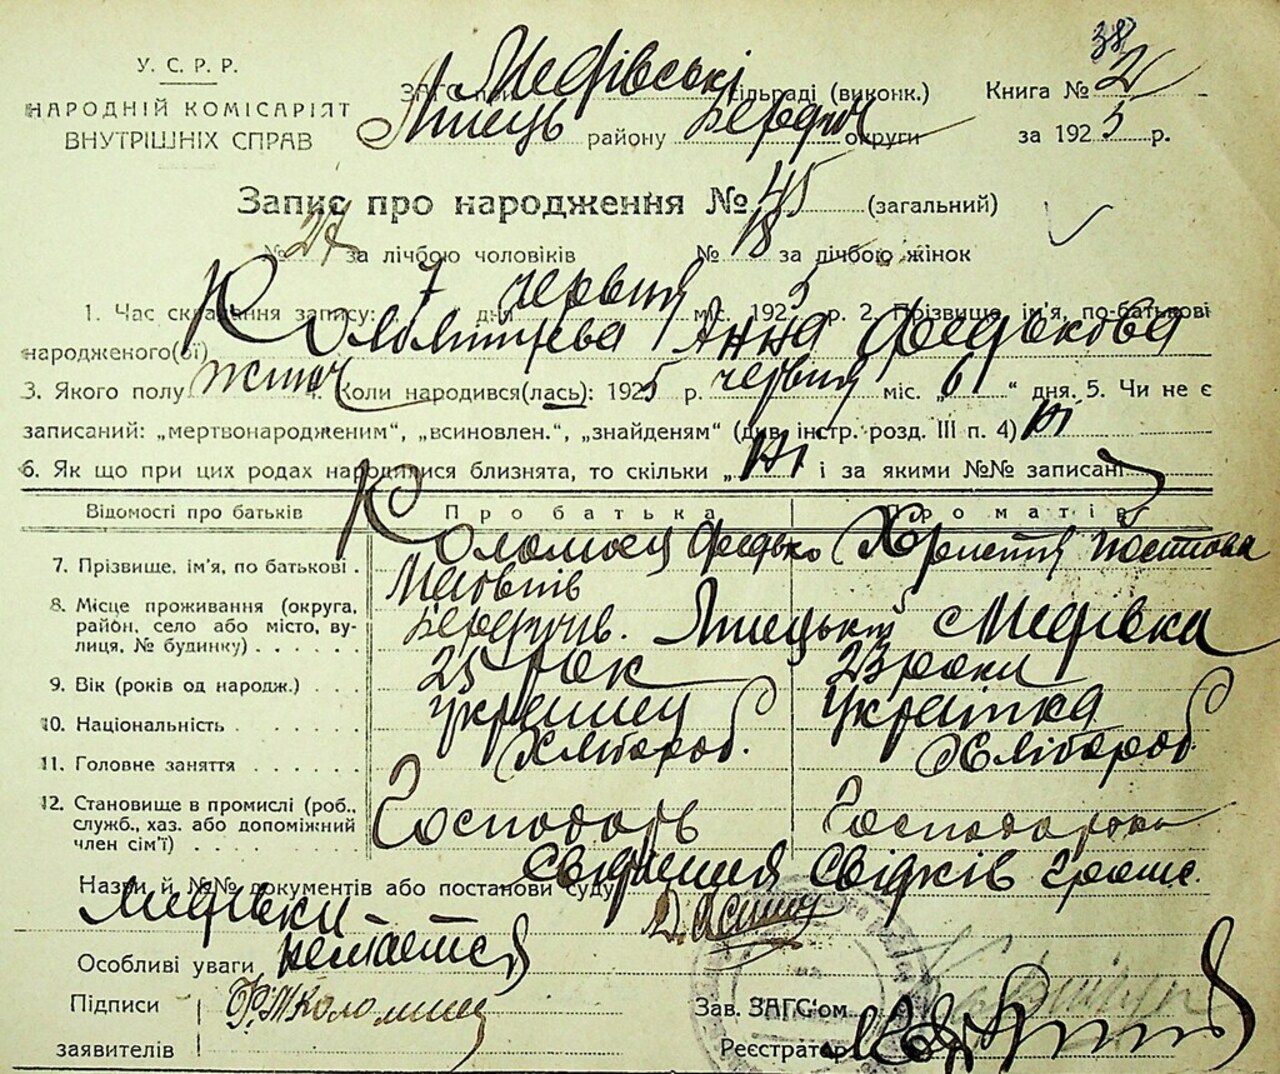 38
У. С. Р. Р.
НАРОДНІЙ КОМІСАРІЯТ
ВНУТРІШНІХ СПРАВ
ЗАГС при Медівські сільраді (виконк.) Книга № 2
району Бердич округи за 1925 р.
Запис про народження № 45 (загальний)
№ 27 за лічбою чоловіків № 18 за лічбою жінок
1. Час складання запису: 7 дня червня міс. 1925 р. 2. Прізвище, ім'я, по-батькові
народженого(ої) Анна Федькова
3. Якого полу жіноч 4. Коли народився(лась): 1925 р. червня міс. „6“ дня. 5. Чи не є
записаний: „мертвонародженим“, „всиновлен.“, „знайденям“ (див. інстр. розд. III п. 4) ні
6. Як що при цих родах народилися близнята, то скільки „ ні і за якими №№ записані
Відомості про батьків Про батька Про матір
7. Прізвище, ім'я, по батькові . Коломієц Федько
8. Місце проживання (округа, район, село або місто, вулиця, № будинку) . . . . . . Бердичів. с Медівка
9. Вік (років од народж.) . . . 25 рок 23 роки
10. Національність . . . . . . українец українка
11. Головне заняття . . . . . . Хлібороб. Хлібороб.
12. Становище в промислі (роб., служб., хаз. або допоміжний член сім'ї) . . . . Господарь Господарка
Назви й №№ документів або постанови суду свідчення свідків
Медівки
Особливі уваги немаєтся
Підписи Коломиец Зав. ЗАГС'ом
заявителів Реєстратор